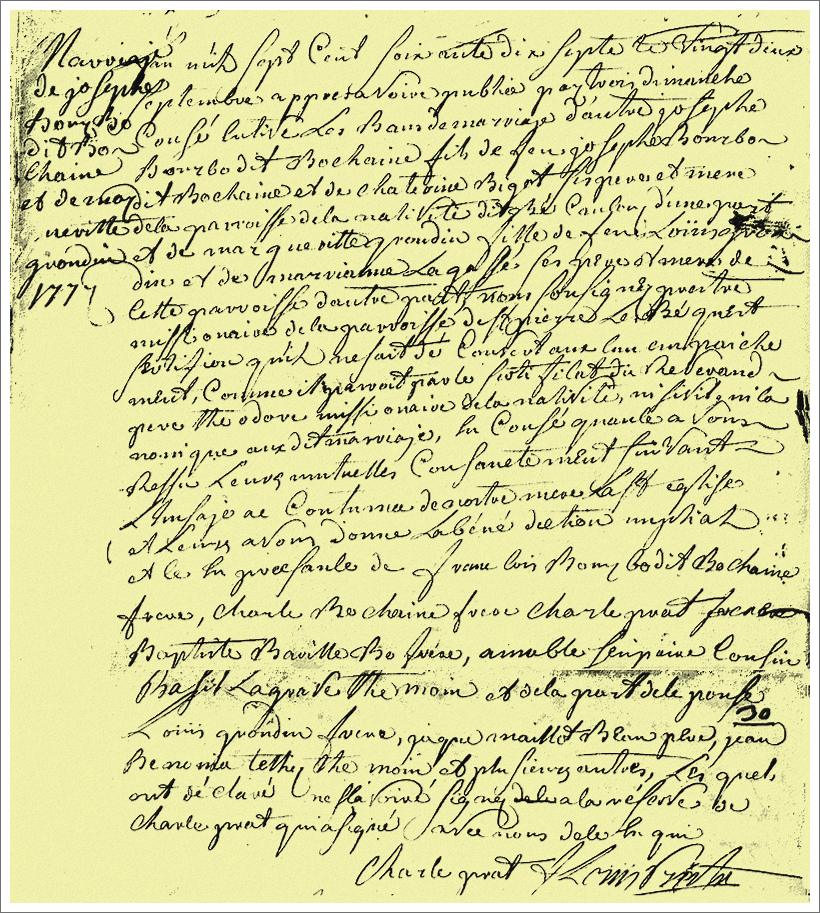 Marriage
de josephe
Bourbo
dit Bo
Chaine
et de mar
neritte
grondin
1777
Lan mil Sept Cent Soixante dix Septe le vingt deux
Septembre appres avoire publiee par trois dimanche
Consé Cutive Les Bans de marriaje d'autre josephe
Bourbo dit Bochaine fils de feu josephe Bourbon
dit Bochaine et de Chaterine Bigot Ses pere et mere
de la parroisse de la nativité d'une part
et de marguerite grondin fille de feu Louiis gron
din et de marrianne Lagassé Ses pere et mere de
Cette parroisse d'autre part, nous Sousigney prestre
missionaire de la parroisse de St pierre Les Béquest
quil ne fait dé Couvert aucun empaiche
ment, Comme il paroit par le Sertifilat du Reverand
pere theodore missionaire de la nativité, ni sivil ni Ca
nonique aux dit marriaje, En Consé quante avons
Ressu Leurs mutuelles Consanetement Suivant
L'usaje ae Coutumee de nostre mere La Ste eglise
et Leurs avons donne La béné diction nuptial
et ce En pressanle de francois Bourbo dit Bochaine
frere, Charle Bochaine frere Charle prat
Baptiste Baville Bo frere, amable Cousin
Basil Lagrave the moin et de la part de le pouse
30
Louiis grondin frere, jaque maillot Beau pere, jean
the moin et plusieurs autres, Les quel,
ont dé claré ne Sçavoire Signé a la réserve de
Charle prat qui a signé avec nous de le En qui
Charle prat Louiis